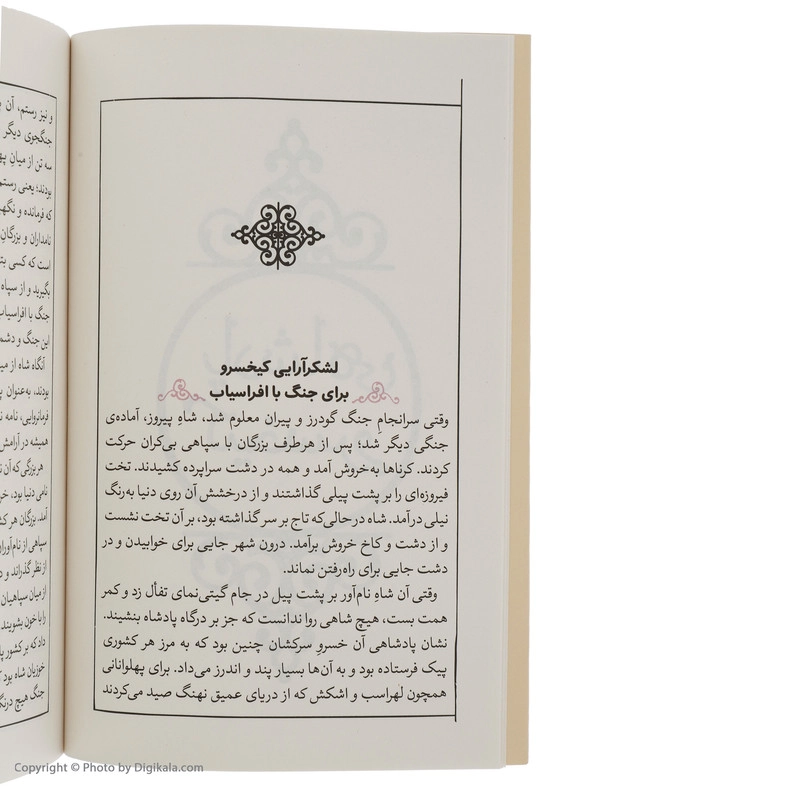 لشکرآرایی کیخسرو
برای جنگ با افراسیاب
وقتی سرانجامِ جنگ گودرز و پیران معلوم شد، شاهِ پیروز، آماده‌ی
جنگی دیگر شد؛ پس از هرطرف بزرگان با سپاهی بی‌کران حرکت
کردند. کرناها به‌خروش آمد و همه در دشت سراپرده کشیدند. تخت
فیروزه‌ای را بر پشت پیلی گذاشتند و از درخشش آن روی دنیا به‌رنگ
نیلی درآمد. شاه درحالی‌که تاج بر سر گذاشته بود، بر آن تخت نشست
و از دشت و کاخ خروش برآمد. درون شهر جایی برای خوابیدن و در
دشت جایی برای راه‌رفتن نماند.
وقتی آن شاهِ نام‌آور بر پشت پیل در جام گیتی‌نمای تفأل زد و کمر
همت بست، هیچ شاهی روا ندانست که جز بر درگاه پادشاه بنشیند.
نشان پادشاهی آن خسروِ سرکشان چنین بود که به مرز هر کشوری
پیک فرستاده بود و به آن‌ها بسیار پند و اندرز می‌داد. برای پهلوانانی
همچون لهراسب و اشکش که از دریای عمیق نهنگ صید می‌کردند
و نیز رستم، آن
جنگجوی دیگر
سه تن از میان
بودند؛ یعنی رستم
که فرمانده و
نامداران و بزرگان
است که کسی
بگیرید و از سپاه
جنگ با افراسیاب
این جنگ و
آنگاه شاه از
بودند، به‌عنوان
فرمانروایی، نامه
همیشه در آرامش
هر بزرگی که آن
نامی دنیا بود،
آمد. بزرگان هر
سپاهی از نام‌آوران
از نظر گذراند و
از میان سپاهیان
را با خون بشویند
داد که بر کشور
خوزیان شاه بود
جنگ هیچ
Copyright © Photo by Digikala.com